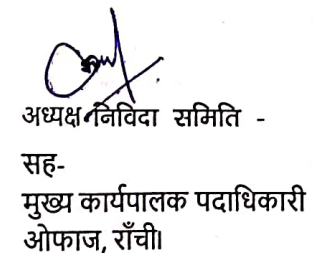 अध्यक्ष निविदा समिति -
सह-
मुख्य कार्यपालक पदाधिकारी
ओफाज, राँची।